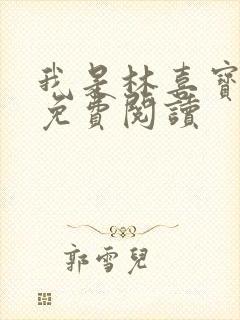 我是林喜寶
免費閱讀
郭雪兒